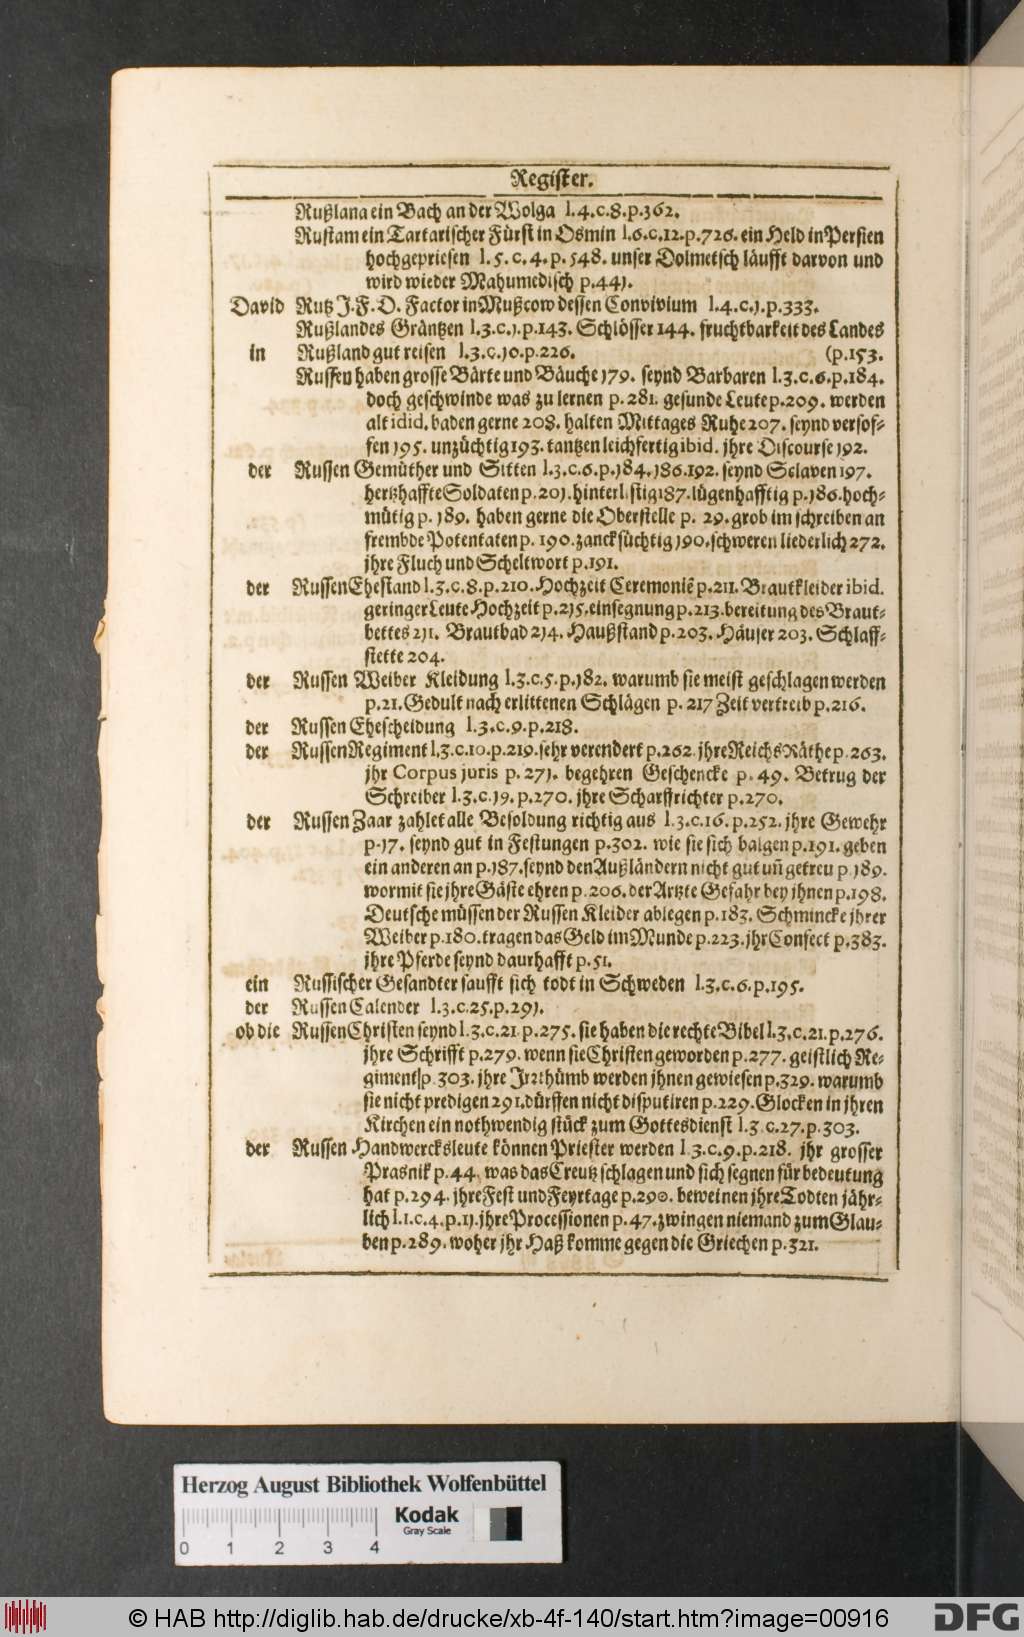 Register.
Rußlana ein Bach an der Wolga l.4.c.8.p.362.
Rustam ein Tartarischer Fürst in Osmin l.6.c.12.p.726. ein Held in Persien
hochgepriesen l.5.c.4.p.548. unser Dolmetsch läufft darvon und
wird wieder Mahumedisch p.441.
David Rutz J.F.D. Factor in Mußcow dessen Convivium l.4.c.1.p.333.
Rußlandes Gräntzen l.3.c.1.p.143. Schlösser 144. fruchtbarkeit des Landes
in Rußland gut reisen l.3.c.10.p.226. (p.153.
Russen haben grosse Bärte und Bäuche 179. seynd Barbaren l.3.c.6.p.184.
doch geschwinde was zu lernen p.281. gesunde Leute p.209. werden
alt idid. baden gerne 208. halten Mittages Ruhe 207. seynd versof-
fen 195. unzüchtig 193. tantzen leichfertig ibid. jhre Discourse 192.
der Russen Gemüther und Sitten l.3.c.6.p.184.186.192. seynd Sclaven 197.
hertzhaffte Soldaten p.201. hinterlistig 187. lügenhafftig p.186. hoch-
mütig p.189. haben gerne die Oberstelle p.29. grob im schreiben an
frembde Potentaten p.190. zancksüchtig 190. schweren liederlich 272.
jhre Fluch und Scheltwort p.191.
der Russen Ehestand l.3.c.8.p.210. Hochzeit Ceremoniē p.211. Brautkleider ibid.
geringer Leute Hochzeit p.215. einsegnung p.213. bereitung des Braut-
bettes 211. Brautbad 214. Haußstand p.203. Häuser 203. Schlaff-
stette 204.
der Russen Weiber Kleidung l.3.c.5.p.182. warumb sie meist geschlagen werden
p.21. Gedult nach erlittenen Schlägen p.217 Zeit vertreib p.216.
der Russen Ehescheidung l.3.c.9.p.218.
der Russen Regiment l.3.c.10.p.219. sehr verendert p.262. jhre Reichs Räthe p.263.
jhr Corpus juris p.271. begehren Geschencke p.49. Betrug der
Schreiber l.3.c.19.p.270. jhre Scharffrichter p.270.
der Russen Zaar zahlet alle Besoldung richtig aus l.3.c.16.p.252. jhre Gewehr
p.17. seynd gut in Festungen p.302. wie sie sich balgen p.191. geben
ein anderen an p.187. seynd den Außländern nicht gut uñ getreu p.189.
wormit sie jhre Gäste ehren p.206. der Artzte Gefahr bey jhnen p.198.
Deutsche müssen der Russen Kleider ablegen p.183. Schmincke jhrer
Weiber p.180. tragen das Geld im Munde p.223. jhr Confect p.383.
jhre Pferde seynd daurhafft p.51.
ein Russischer Gesandter saufft sich todt in Schweden l.3.c.6.p.195.
der Russen Calender l.3.c.25.p.291.
ob die Russen Christen seynd l.3.c.21.p.275. sie haben die rechte Bibel l.3.c.21.p.276.
jhre Schrifft p.279. wenn sie Christen geworden p.277. geistlich Re-
giment p.303. jhre Irrthümb werden jhnen gewiesen p.329. warumb
sie nicht predigen 291. dürffen nicht disputiren p.229. Glocken in jhren
Kirchen ein nothwendig stück zum Gottesdienst l.3.c.27.p.303.
der Russen Handwercksleute können Priester werden l.3.c.9.p.218. jhr grosser
Prasnik p.44. was das Creutz schlagen und sich segnen für bedeutung
hat p.294. jhre Fest und Feyrtage p.290. beweinen jhre Todten jähr-
lich l.1.c.4.p.11. jhre Processionen p.47. zwingen niemand zum Glau-
ben p.289. woher jhr Haß komme gegen die Griechen p.321.
Herzog August Bibliothek Wolfenbüttel
Kodak
Gray Scale
0 1 2 3 4
© HAB http://diglib.hab.de/drucke/xb-4f-140/start.htm?image=00916
DFG